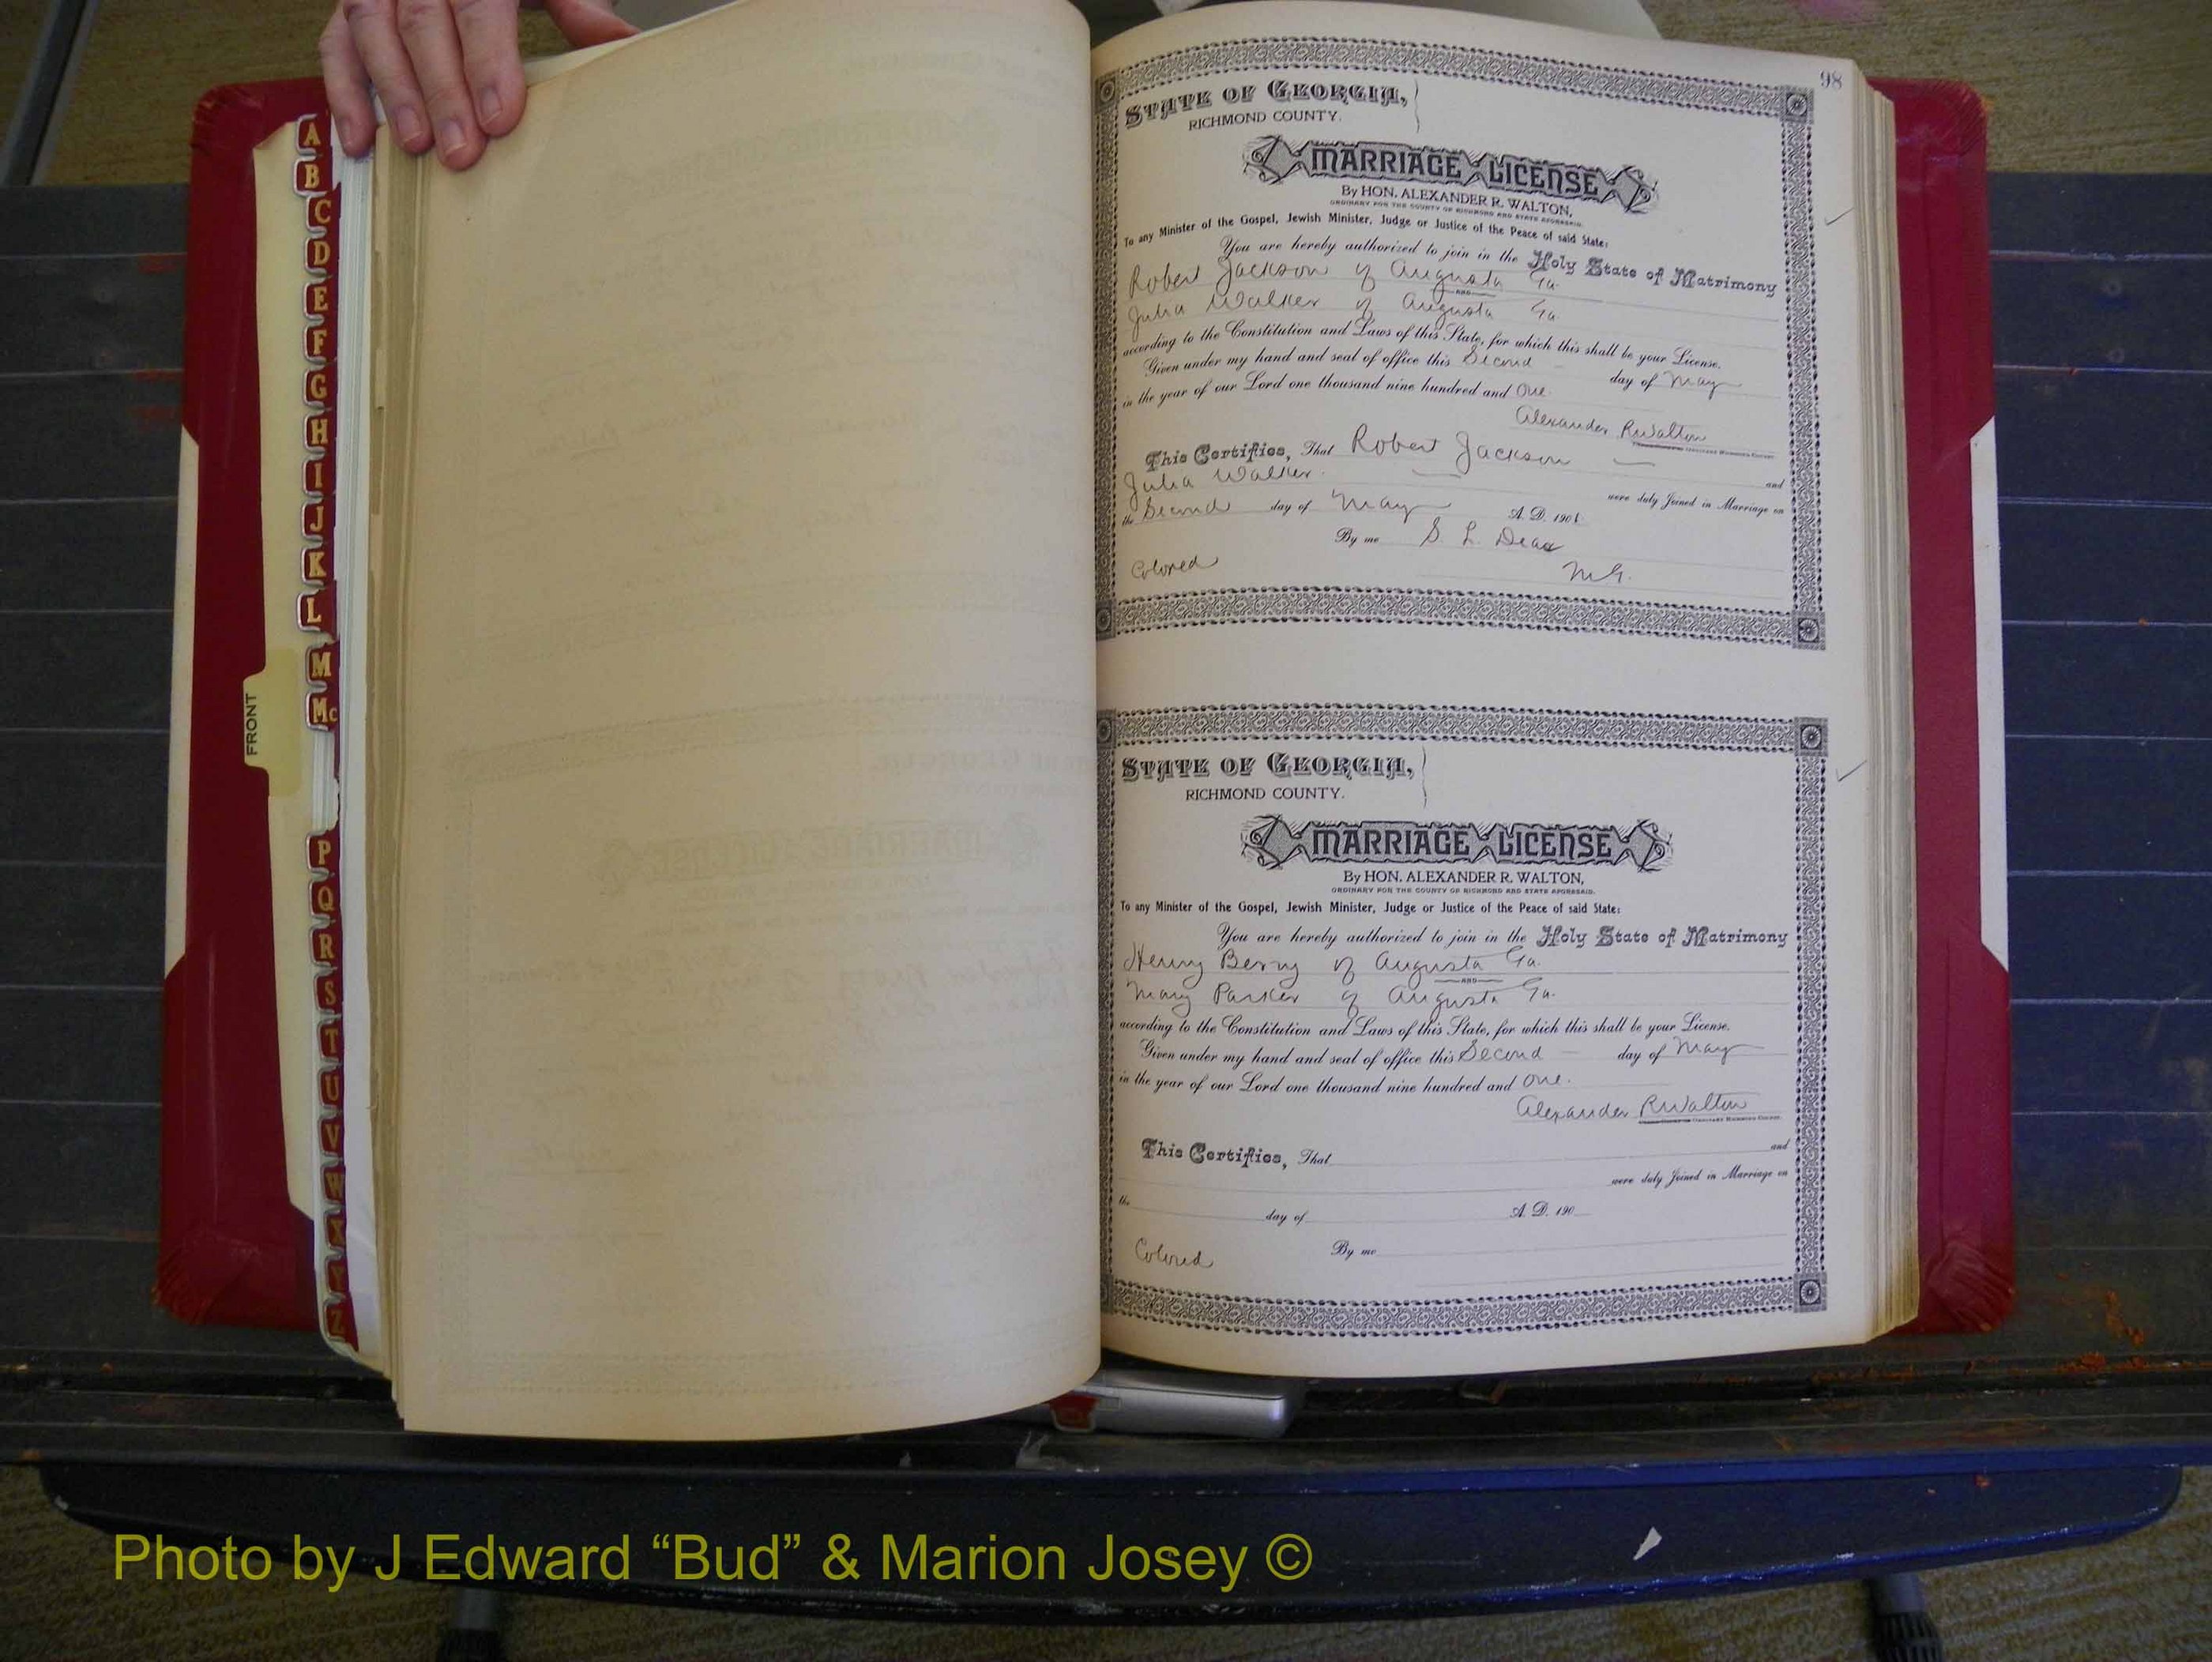 A
B
C
D
E
F
G
H
I
J
K
L
M
Mc
P
Q
R
S
T
U
V
W
X
Y
Z
FRONT
98
STATE OF GEORGIA,
RICHMOND COUNTY.
MARRIAGE LICENSE
By HON. ALEXANDER R. WALTON,
ORDINARY FOR THE COUNTY OF RICHMOND AND STATE AFORESAID.
To any Minister of the Gospel, Jewish Minister, Judge or Justice of the Peace of said State:
You are hereby authorized to join in the Holy State of Matrimony
Robert Jackson of Augusta Ga.
AND
Julia Walker of Augusta Ga
according to the Constitution and Laws of this State, for which this shall be your License.
Given under my hand and seal of office this Second day of May
in the year of our Lord one thousand nine hundred and One.
Alexander R Walton
This Certifies, That Robert Jackson and
Julia Walker. were duly Joined in Marriage on
the Second day of May A. D. 1901
By me S. L. Deas
Colored M.G.
STATE OF GEORGIA,
RICHMOND COUNTY.
MARRIAGE LICENSE
By HON. ALEXANDER R. WALTON,
ORDINARY FOR THE COUNTY OF RICHMOND AND STATE AFORESAID.
To any Minister of the Gospel, Jewish Minister, Judge or Justice of the Peace of said State:
You are hereby authorized to join in the Holy State of Matrimony
Henry Berry of Augusta Ga.
AND
Mary Parker of Augusta Ga.
according to the Constitution and Laws of this State, for which this shall be your License.
Given under my hand and seal of office this Second day of May
in the year of our Lord one thousand nine hundred and One.
Alexander R Walton
This Certifies, That and
were duly Joined in Marriage on
the day of A. D. 190
Colored By me
Photo by J Edward “Bud” & Marion Josey ©